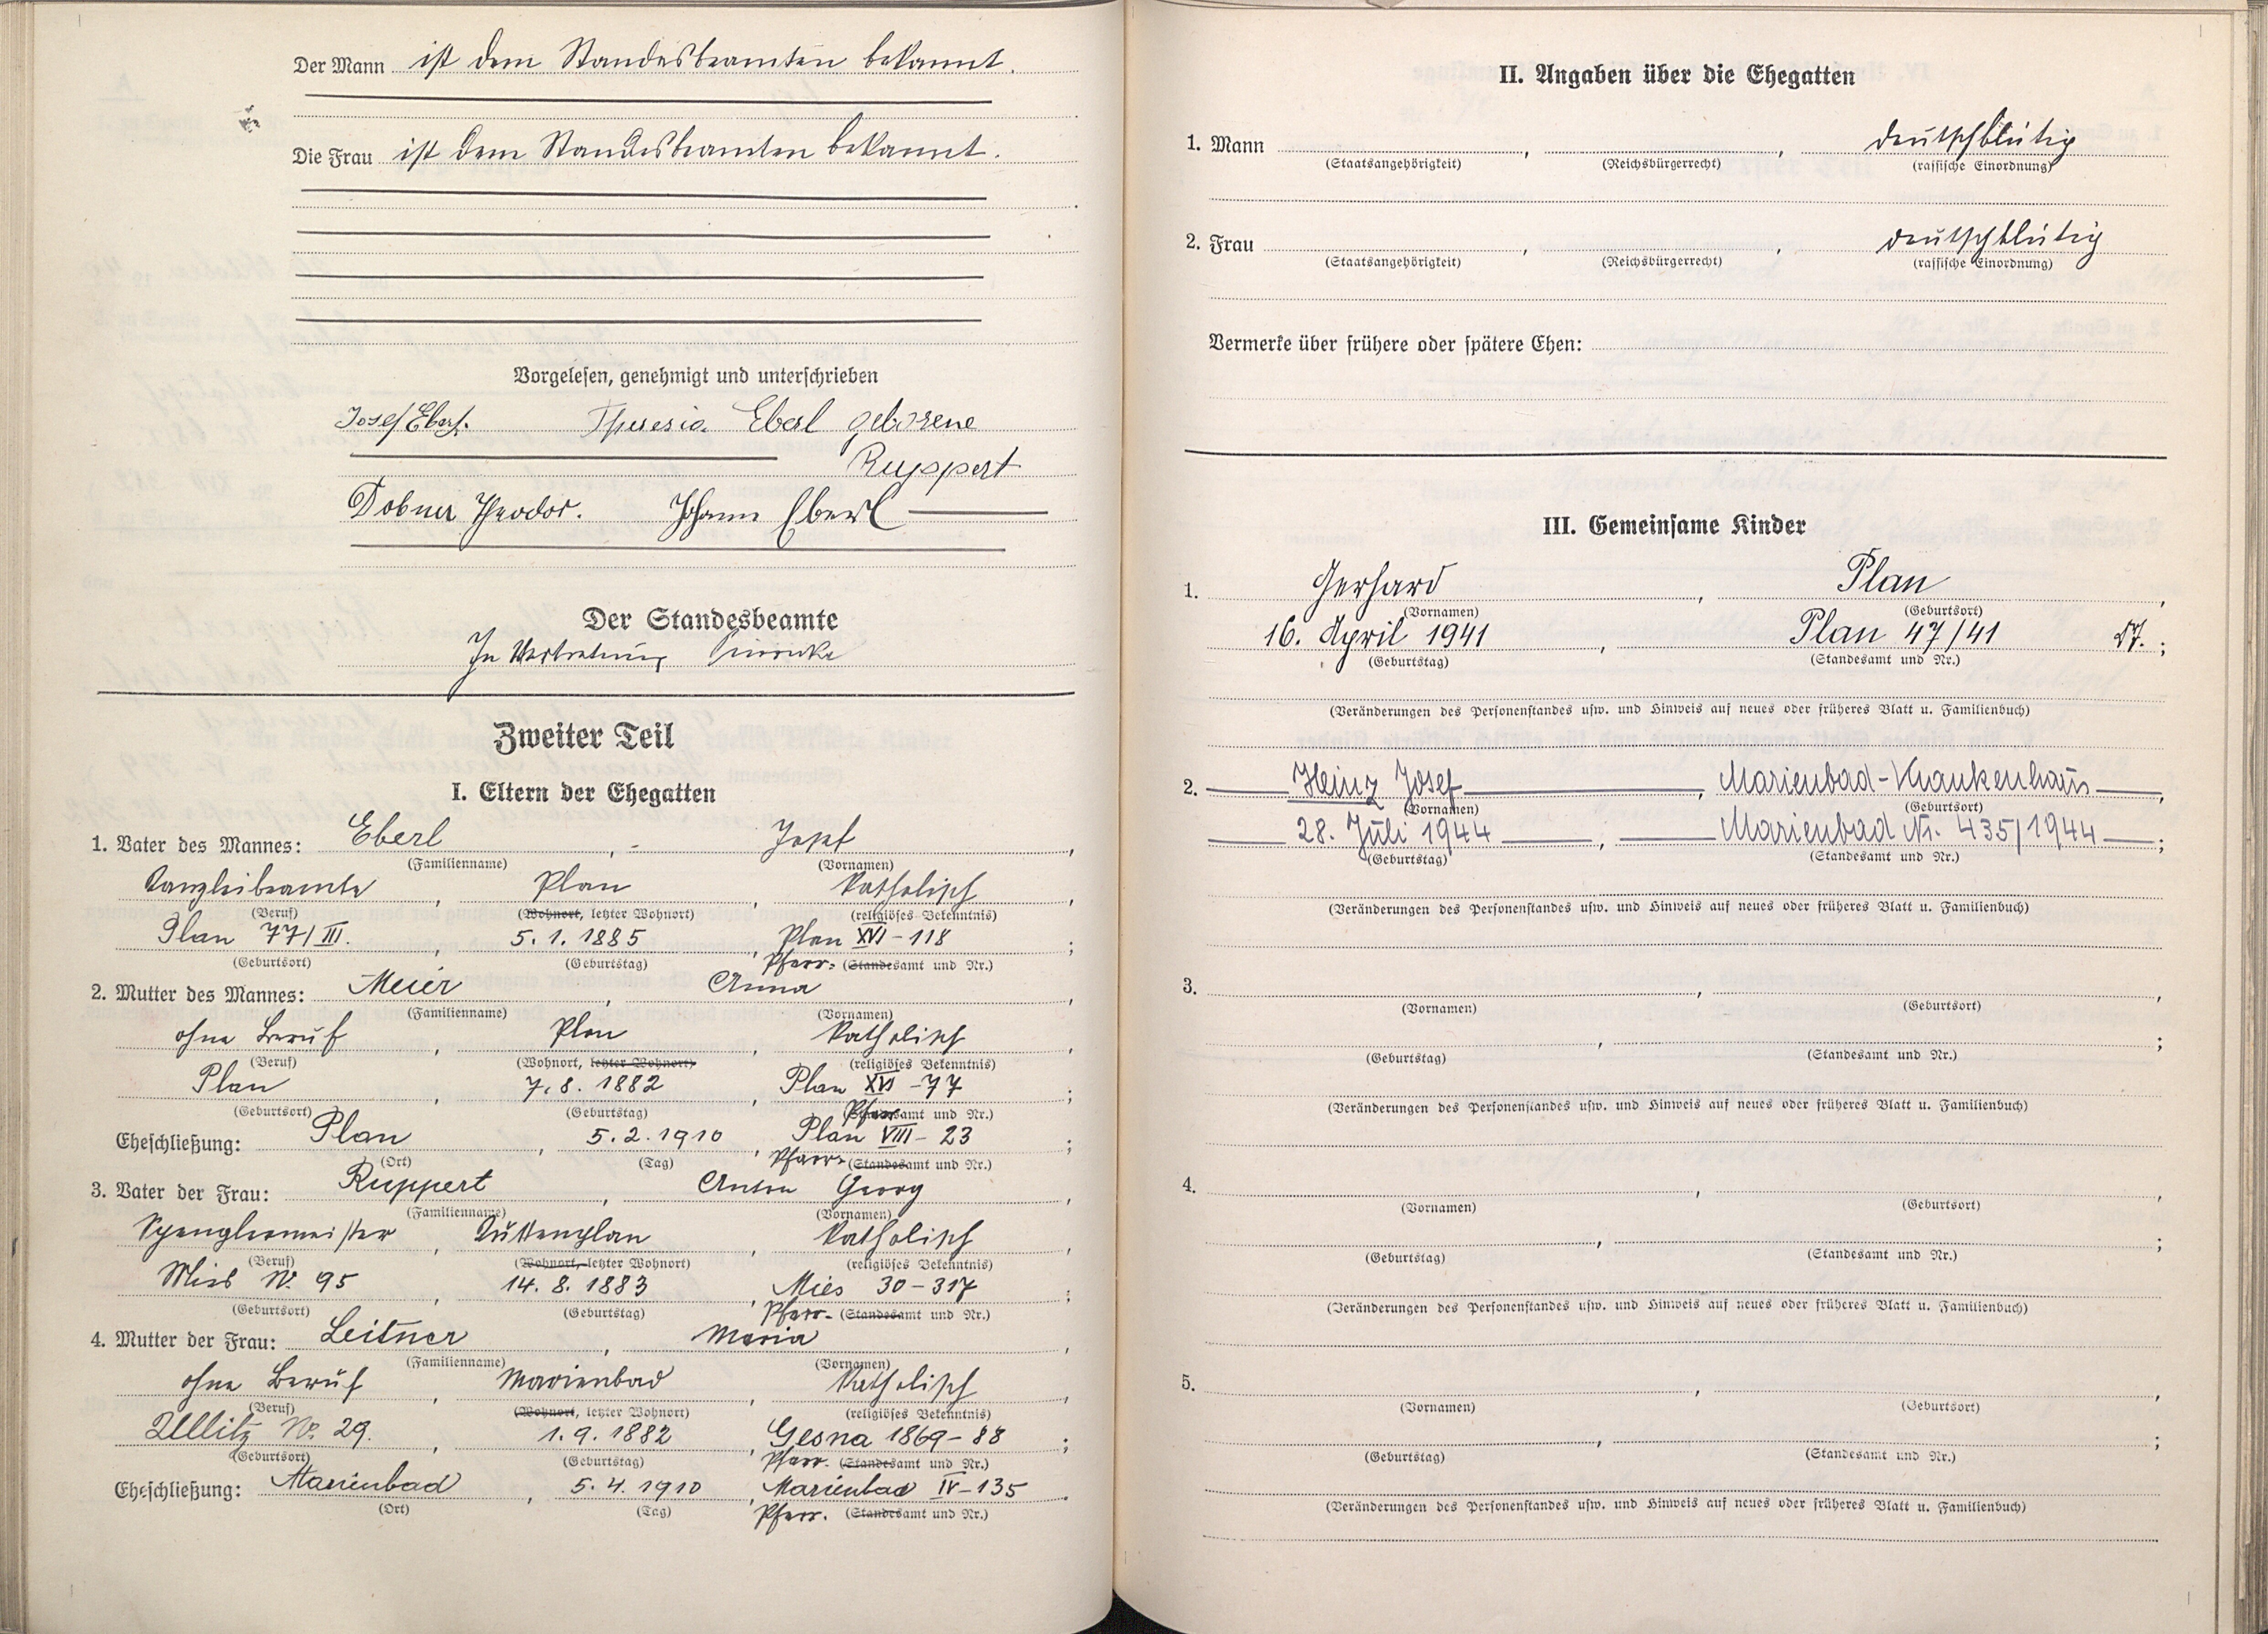 Der Mann ist dem Standesbeamten bekannt.
Die Frau ist dem Standesbeamten bekannt.
Vorgelesen, genehmigt und unterschrieben
Josef Eberl. Theresia Eberl geborene
Ruppert
Dobner Theodor. Johann Eberl
Der Standesbeamte
In Vertretung
Zweiter Teil
I. Eltern der Ehegatten
1. Vater des Mannes: Eberl, - Josef,
(Familienname) (Vornamen)
Kanzleibeamte, Plan, katholisch,
(Beruf) (Wohnort, letzter Wohnort) (religiöses Bekenntnis)
Plan 77/III., 5. 1. 1885, Plan XVI - 118;
(Geburtsort) (Geburtstag) Pfarr- (Standesamt und Nr.)
2. Mutter des Mannes: Meier, Anna,
(Familienname) (Vornamen)
ohne Beruf, Plan, katholisch,
(Beruf) (Wohnort, letzter Wohnort) (religiöses Bekenntnis)
Plan, 7. 8. 1882, Plan XVI - 77;
(Geburtsort) (Geburtstag) Pfarramt und Nr.)
Eheschließung: Plan, 5. 2. 1910, Plan VIII - 23;
(Ort) (Tag) Pfarr- (Standesamt und Nr.)
3. Vater der Frau: Ruppert, Anton Georg,
(Familienname) (Vornamen)
Spenglermeister, Kuttenplan, katholisch,
(Beruf) (Wohnort, letzter Wohnort) (religiöses Bekenntnis)
Mies Nr. 95, 14. 8. 1883, Mies 30 - 317;
(Geburtsort) (Geburtstag) Pfarr- (Standesamt und Nr.)
4. Mutter der Frau: Leitner, Maria,
(Familienname) (Vornamen)
ohne Beruf, Marienbad, katholisch,
(Beruf) (Wohnort, letzter Wohnort) (religiöses Bekenntnis)
Ullitz Nr. 29., 1. 9. 1882, Gesna 1869 - 88;
(Geburtsort) (Geburtstag) Pfarr. (Standesamt und Nr.)
Eheschließung: Marienbad, 5. 4. 1910, Marienbad IV - 135.
(Ort) (Tag) Pfarr. (Standesamt und Nr.)
II. Angaben über die Ehegatten
1. Mann , , deutschblütig
(Staatsangehörigkeit) (Reichsbürgerrecht) (rassische Einordnung)
2. Frau , , deutschblütig
(Staatsangehörigkeit) (Reichsbürgerrecht) (rassische Einordnung)
Vermerke über frühere oder spätere Ehen:
III. Gemeinsame Kinder
1. Gerhard, Plan,
(Vornamen) (Geburtsort)
16. April 1941, Plan 47/41 ;
(Geburtstag) (Standesamt und Nr.)
(Veränderungen des Personenstandes usw. und Hinweis auf neues oder früheres Blatt u. Familienbuch)
2. Heinz Josef, Marienbad-Krankenhaus,
(Vornamen) (Geburtsort)
28. Juli 1944, Marienbad Nr. 435/1944;
(Geburtstag) (Standesamt und Nr.)
(Veränderungen des Personenstandes usw. und Hinweis auf neues oder früheres Blatt u. Familienbuch)
3. , ,
(Vornamen) (Geburtsort)
, ;
(Geburtstag) (Standesamt und Nr.)
(Veränderungen des Personenstandes usw. und Hinweis auf neues oder früheres Blatt u. Familienbuch)
4. , ,
(Vornamen) (Geburtsort)
, ;
(Geburtstag) (Standesamt und Nr.)
(Veränderungen des Personenstandes usw. und Hinweis auf neues oder früheres Blatt u. Familienbuch)
5. , ,
(Vornamen) (Geburtsort)
, ;
(Geburtstag) (Standesamt und Nr.)
(Veränderungen des Personenstandes usw. und Hinweis auf neues oder früheres Blatt u. Familienbuch)